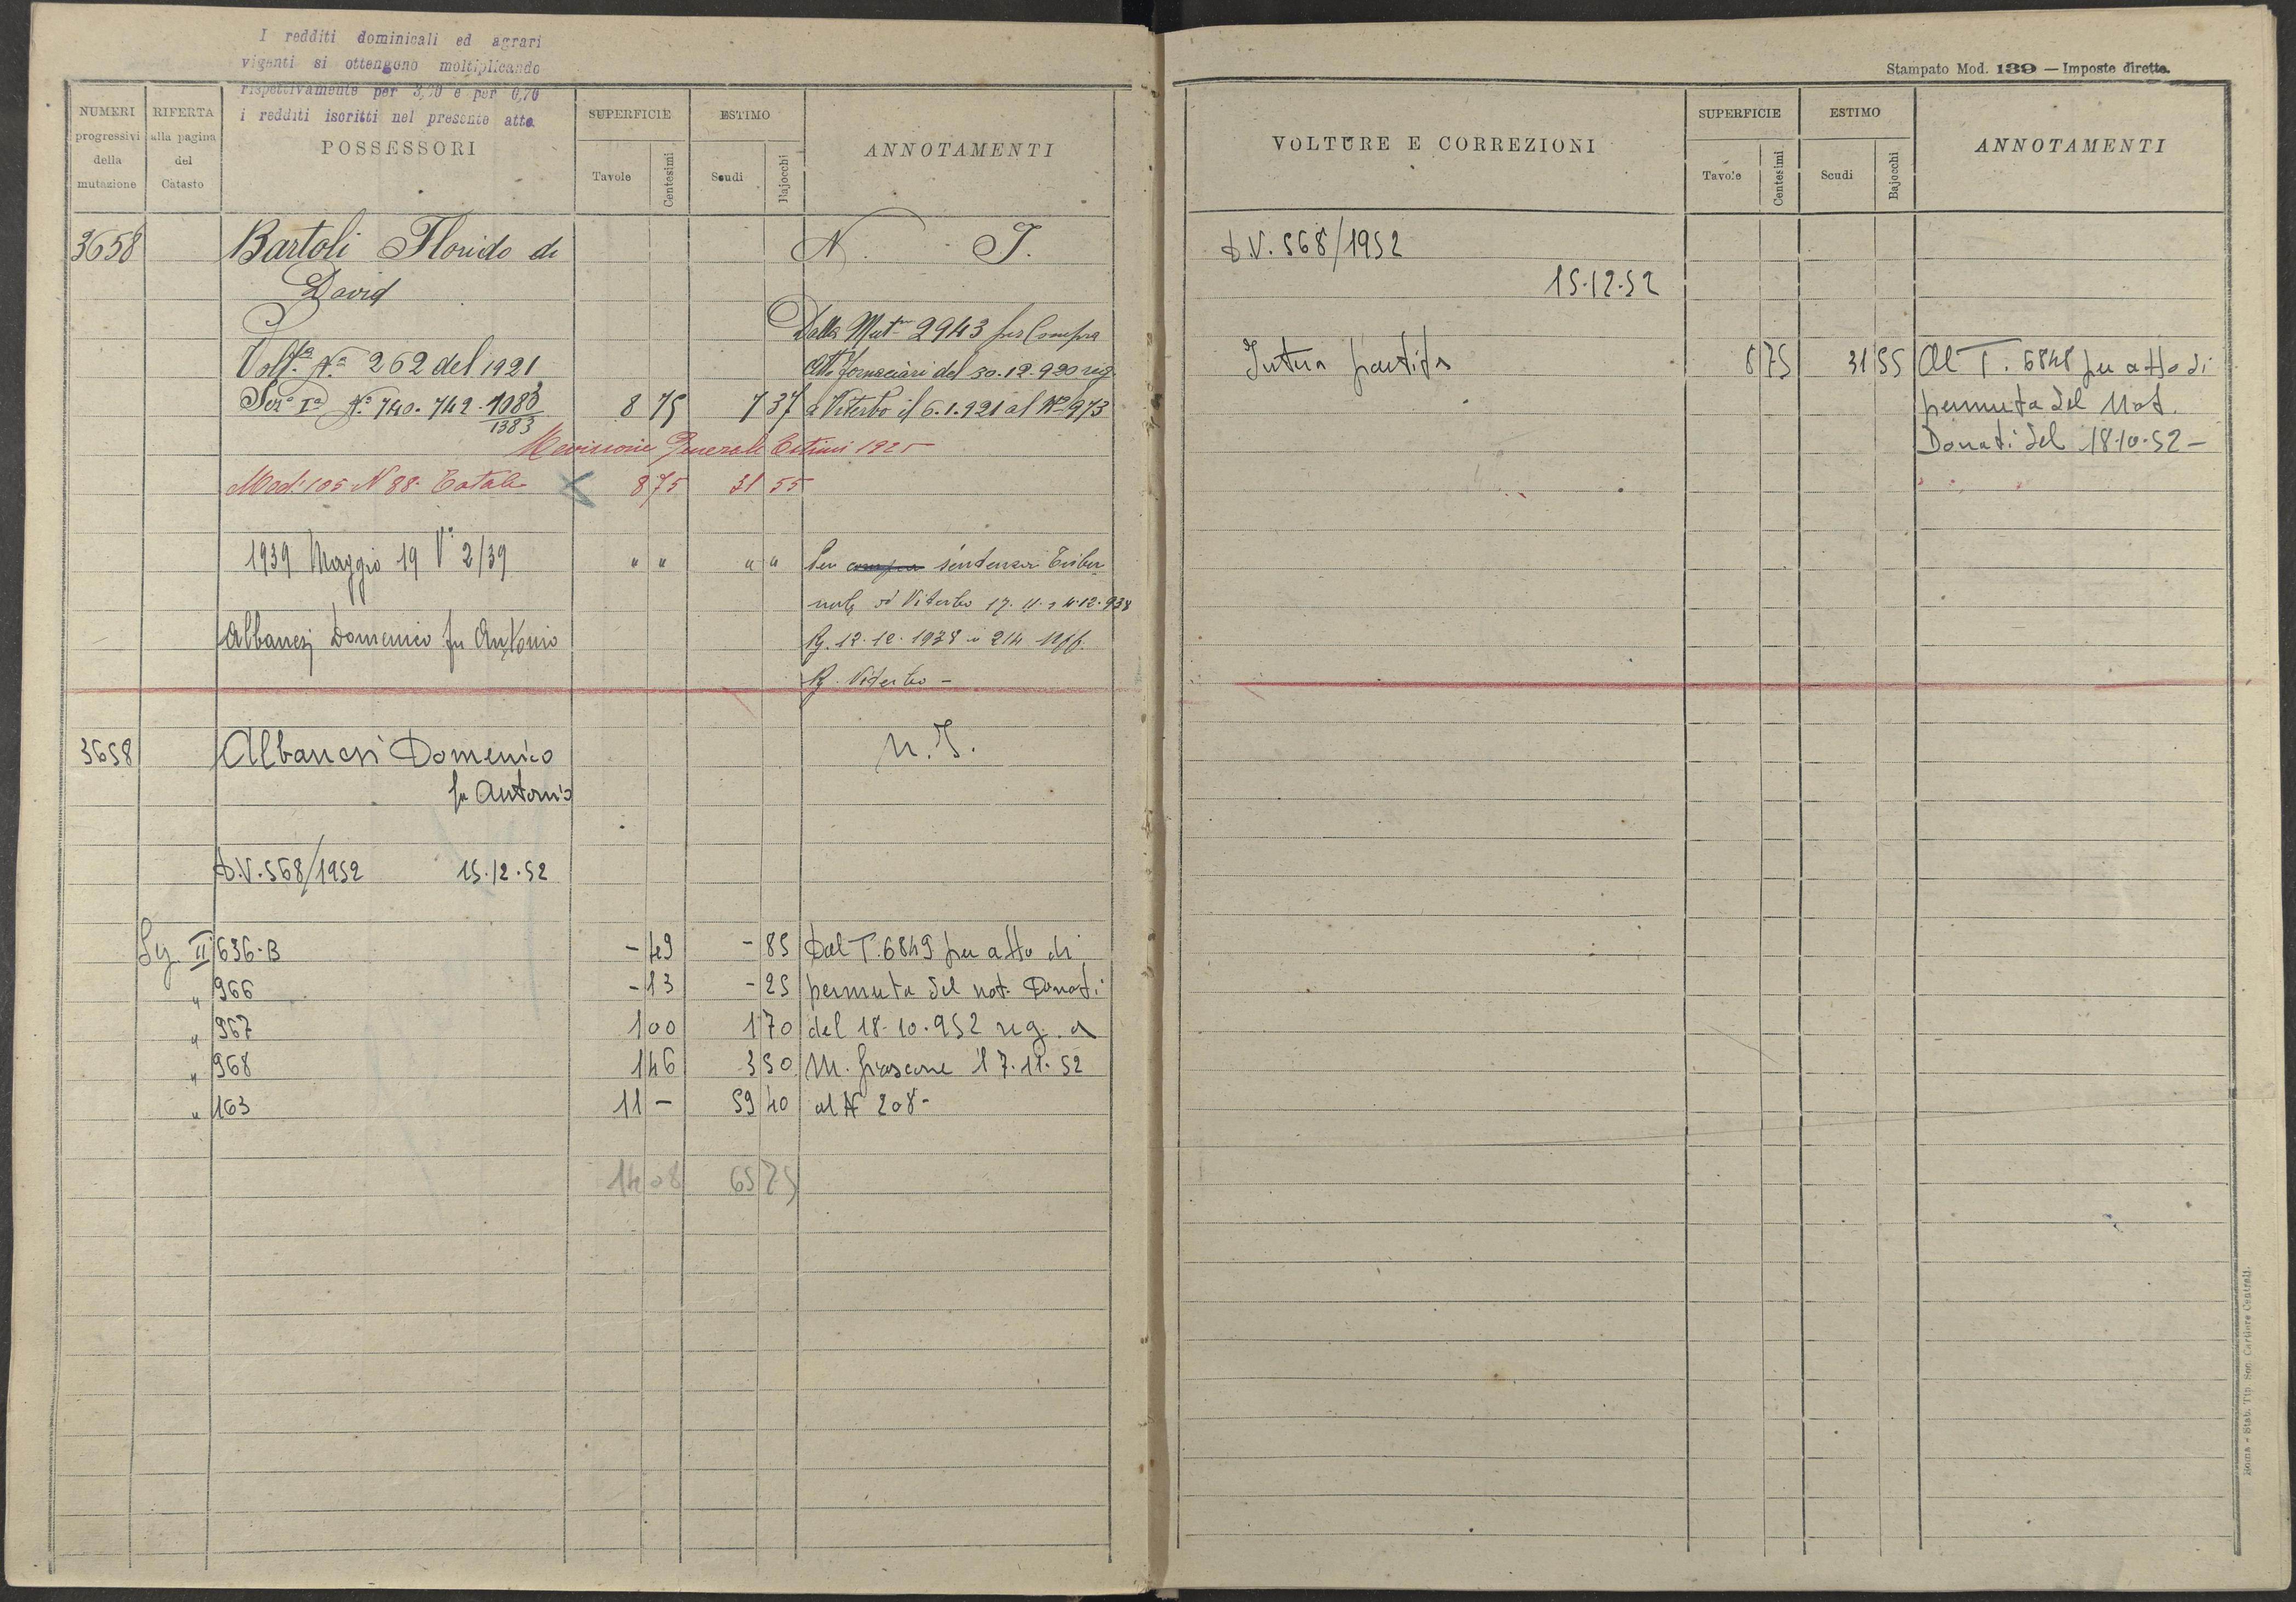 I redditi dominicali ed agrari
vigenti si ottengono moltiplicando
rispettivamente per 3,70 e per 0,70
i redditi iscritti nel presente atto
NUMERI progressivi della mutazione
RIFERTA alla pagina del Catasto
POSSESSORI
SUPERFICIE
Tavole Centesimi
ESTIMO
Scudi Bajocchi
ANNOTAMENTI
3658 Bartoli Florido di N. I.
David
Dalla Mut.ne 2943 per Compra
Volt.ra N.o 262 del 1921 Atto Fornaciari del 30.12.920 reg
Sez.e Ia N.o 740. 742. 1083/1383 8 75 7 37 a Viterbo il 6.1.921 al N.o 973
Revisione Generale Estimi 1925
Mod: 105 N 88. Totale 8 75 31 55
1939 Maggio 19 V. 2/39 " " " " Per compra sentenza Tribu
nale di Viterbo 17. 11. 4.12.938
Albanesi Domenico fu Antonio Rg. 12. 12. 1938 n 214 Uff.
Rg. Viterbo -
3658 Albanesi Domenico N. I.
fu Antonio
D.V. 568/1952 15.12.52
Sez. II 636-B - 49 - 85 Dal T. 6849 per atto di
" 966 - 13 - 25 permuta del not. Donati
" 967 1 00 1 70 del 18-10.952 reg. a
" 968 1 46 3 50 M. fiascone il 7.11.52
" 163 11 - 59 40 al N 208-
14 08 65 75
Stampato Mod. 139 — Imposte dirette.
VOLTURE E CORREZIONI
SUPERFICIE
Tavole Centesimi
ESTIMO
Scudi Bajocchi
ANNOTAMENTI
D.V. 568/1952
15.12.52
Intera partita 8 75 31 55 Al T. 6848 per atto di
permuta del Not.
Donati del 18-10-52 -
Roma - Stab. Tip. Soc. Cartiere Centrali.